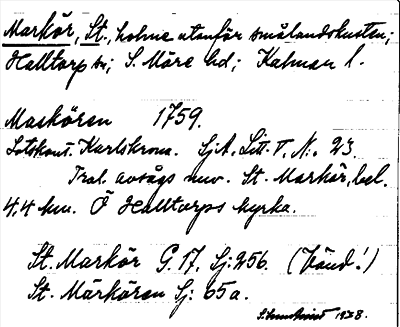 Markör, St., holme utanför smålandskusten;
Halltorp sn; S. Möre hd; Kalmar l.
Maskören 1759.
Lotskont. Karlskrona. SjA, Litt. T, N:o 23.
Trol. avsågs nuv. St. Markör, bel.
4,4 km. Ö Halltorps kyrka.
St. Markör G. 17, Sj: 256. (Vänd!)
St. Märkären Sj: 65a.
1928.